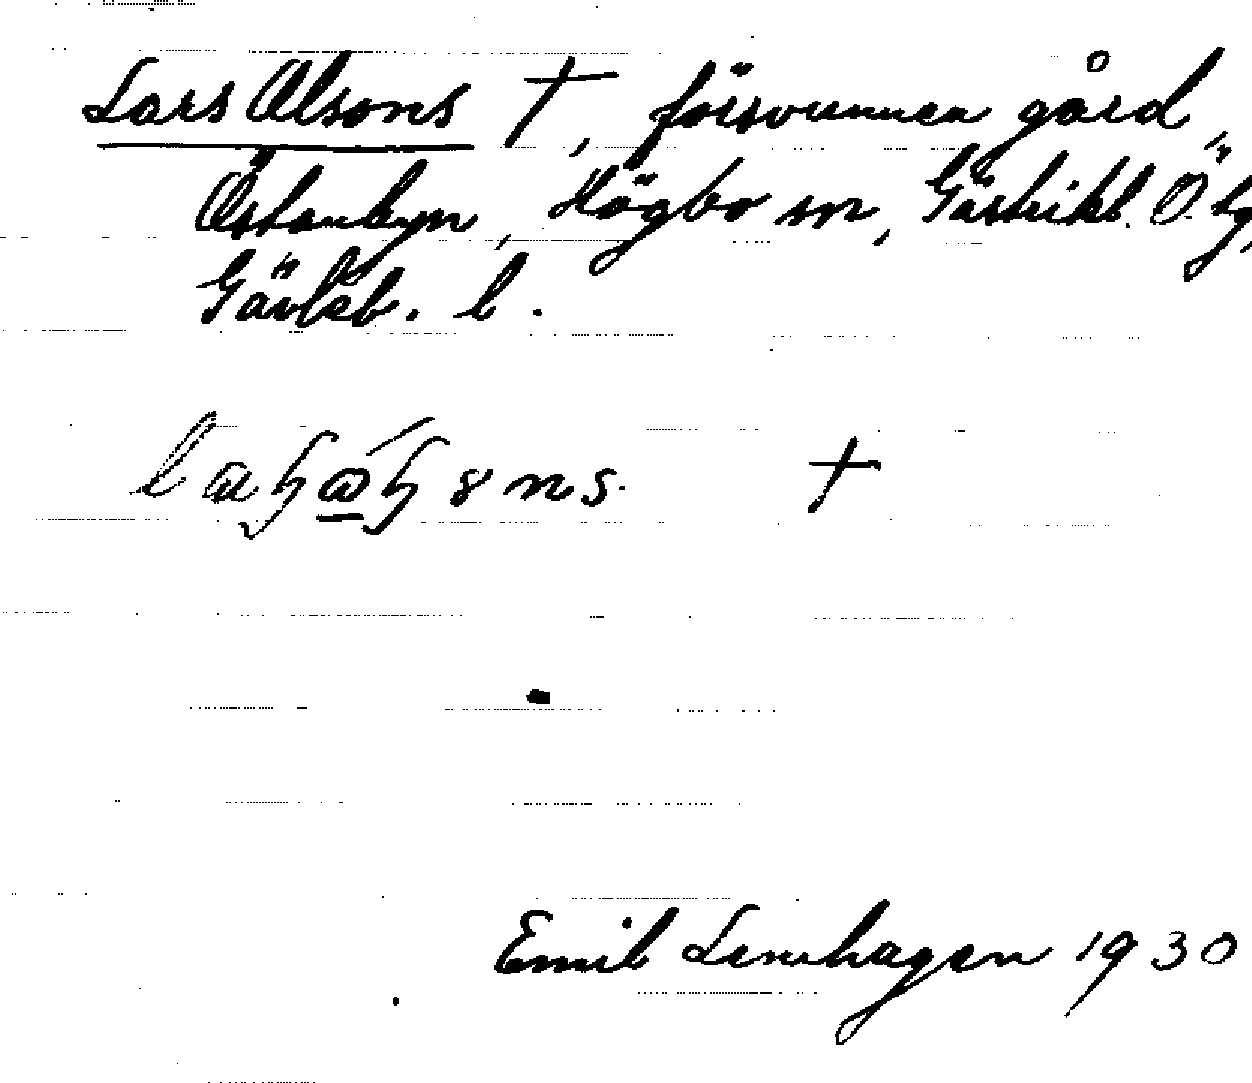 Lars Olsons †, försvunnen gård,
Östanbyn, Högbo sn, Gästrikl. Ö. tg,
Gävleb. l.
†
Emil Lenhagen 1930